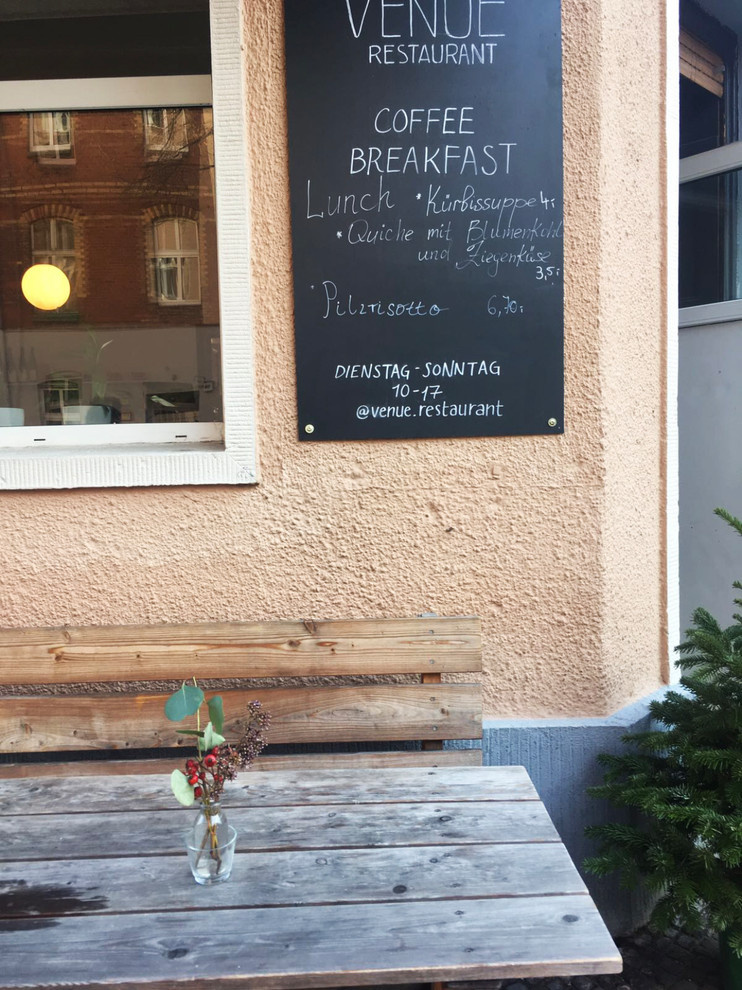 VENUE
RESTAURANT
COFFEE
BREAKFAST
Lunch *Kürbissuppe 4,-
*Quiche mit Blumenkohl
und Ziegenkäse
3,5,-
*Pilzrisotto 6,70,-
DIENSTAG-SONNTAG
10-17
@venue.restaurant